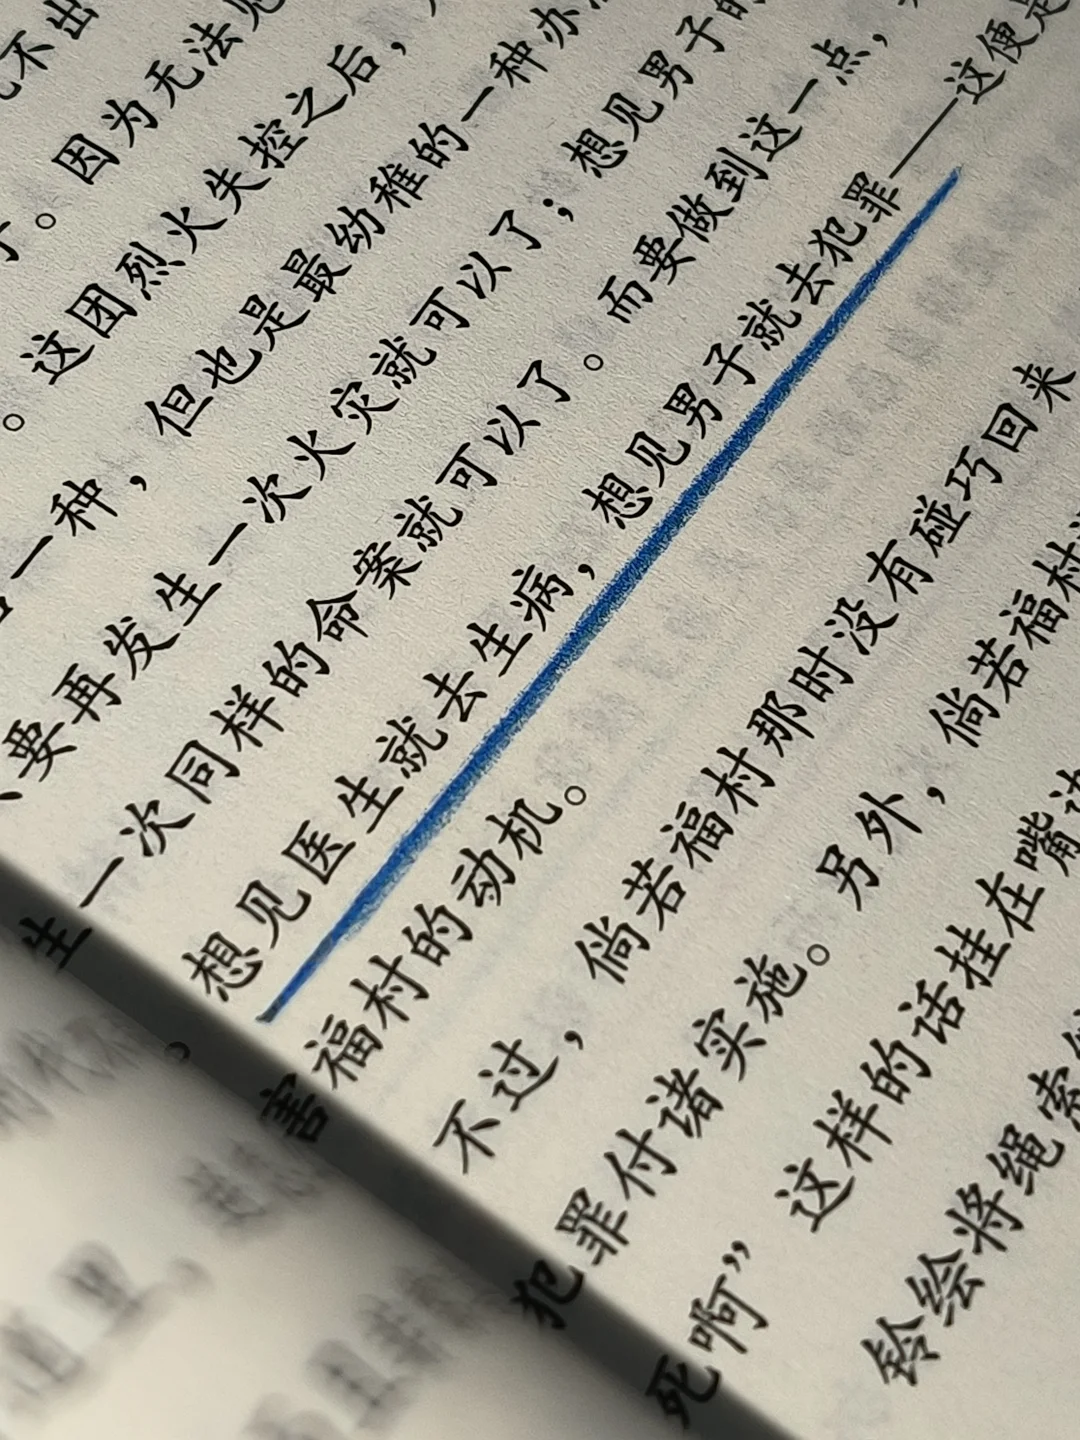 不出
因为无法见
。这团烈火失控之后，
一种，但也是最幼稚的一种办
要再发生一次火灾就可以了；想见男子的
生一次同样的命案就可以了。而要做到这一点，
想见医生就去生病，想见男子就去犯罪——这便是
害福村的动机。
不过，倘若福村那时没有碰巧回来
犯罪付诸实施。另外，倘若福村
死啊”这样的话挂在嘴边
铃绘将绳索